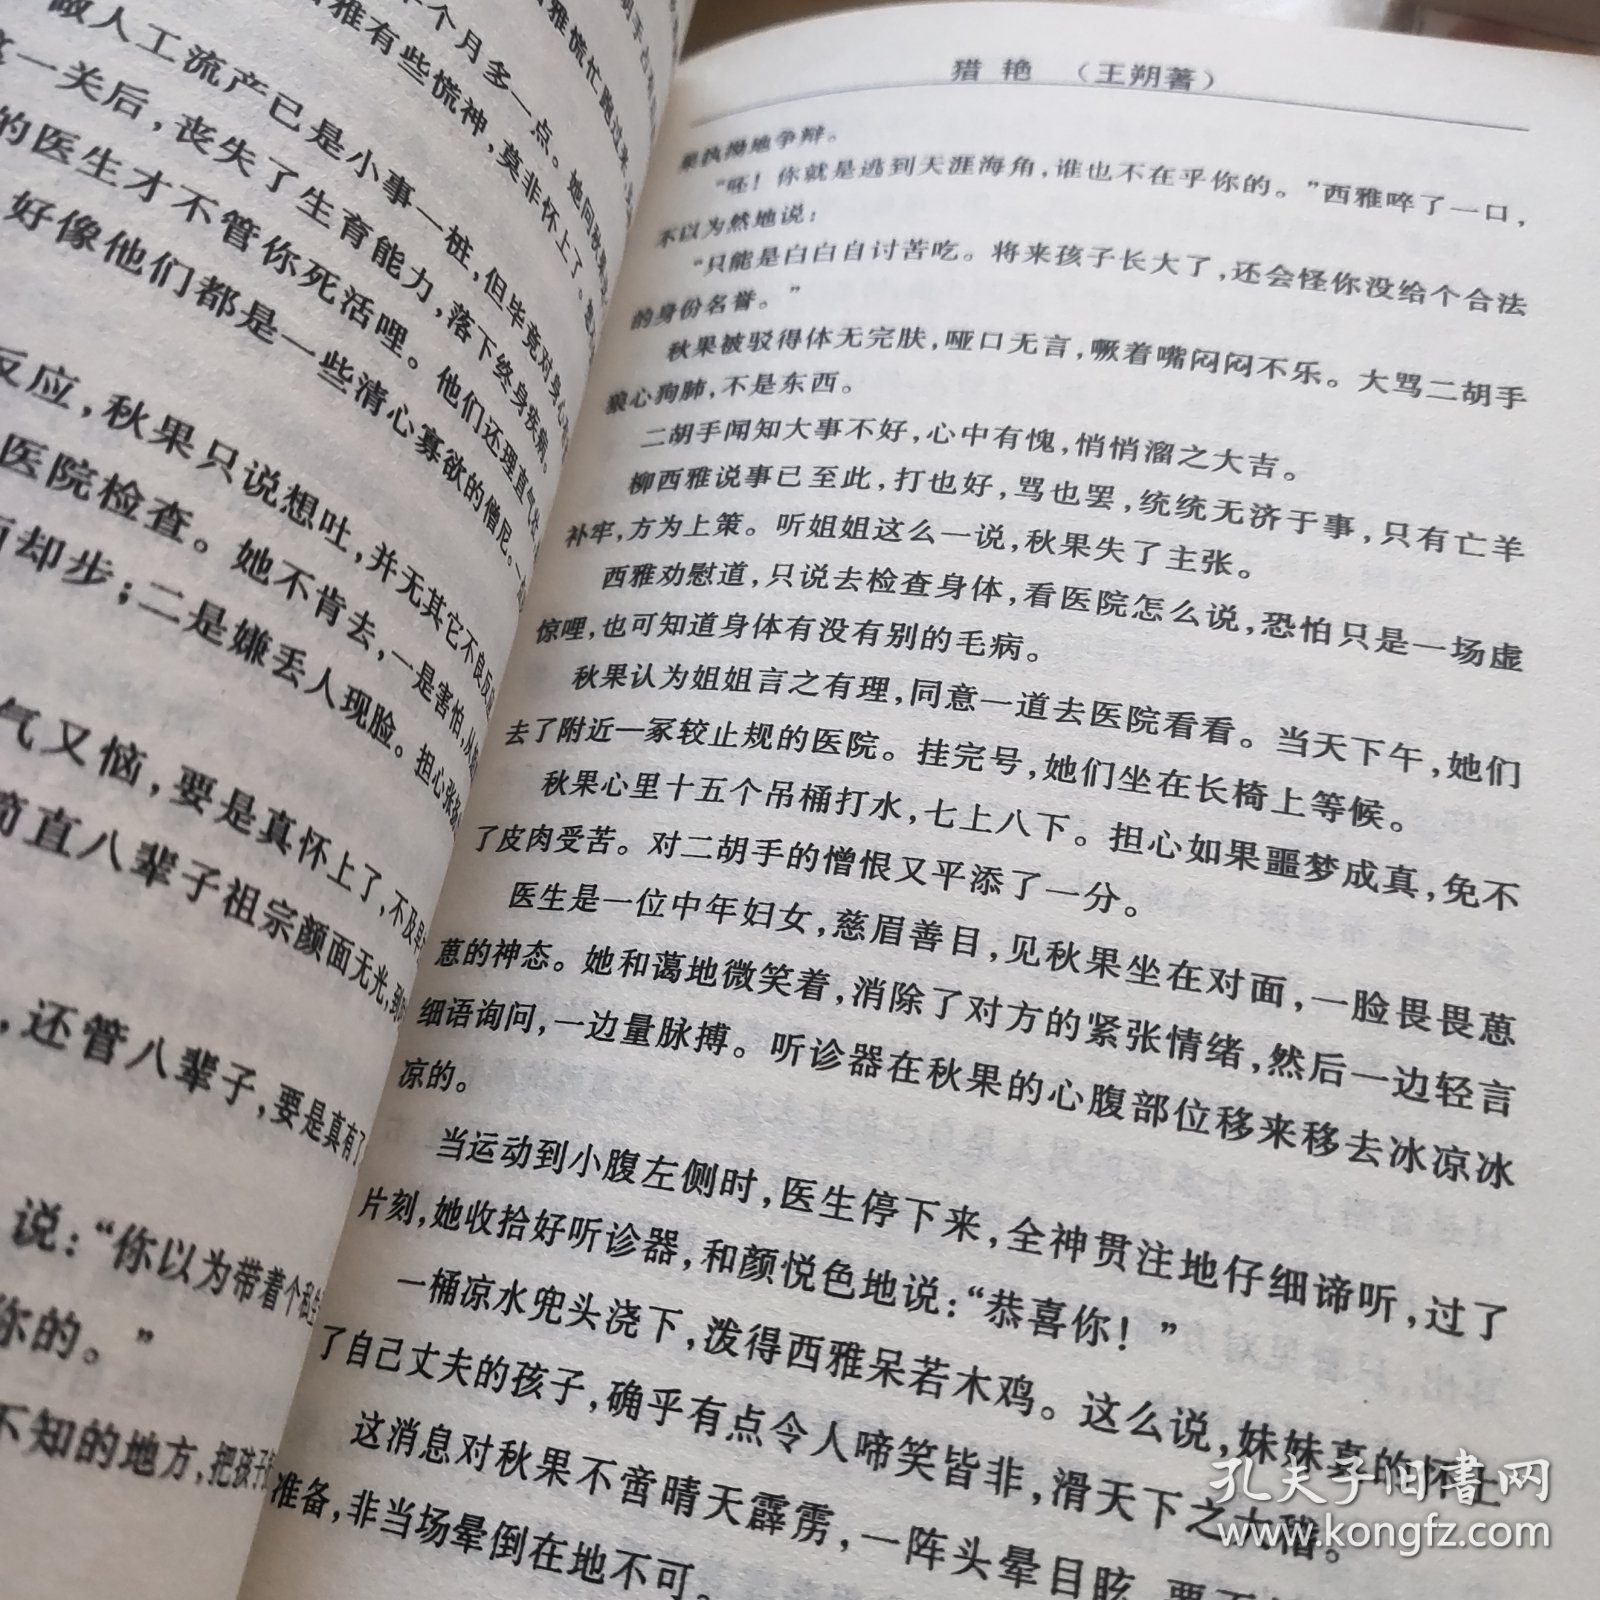 做人工流产已是小事一桩，但毕竟对身心
这一关后，丧失了生育能力，落下终身疾病。
的医生才不管你死活哩。他们还理直气
好像他们都是一些清心寡欲的僧尼。一
反应，秋果只说想吐，并无其它不良反应
医院检查。她不肯去，一是害怕，从
而却步；二是嫌丢人现脸。担心张
气又恼，要是真怀上了，不及早
简直八辈子祖宗颜面无光，到
，还管八辈子，要是真有了
说：“你以为带着个私生
你的。”
不知的地方，把孩子
猎 艳 （王朔著）
果执拗地争辩。
“呸！你就是逃到天涯海角，谁也不在乎你的。”西雅啐了一口，
不以为然地说：
“只能是白白自讨苦吃。将来孩子长大了，还会怪你没给个合法
的身份名誉。”
秋果被驳得体无完肤，哑口无言，噘着嘴闷闷不乐。大骂二胡手
狼心狗肺，不是东西。
二胡手闻知大事不好，心中有愧，悄悄溜之大吉。
柳西雅说事已至此，打也好，骂也罢，统统无济于事，只有亡羊
补牢，方为上策。听姐姐这么一说，秋果失了主张。
西雅劝慰道，只说去检查身体，看医院怎么说，恐怕只是一场虚
惊哩，也可知道身体有没有别的毛病。
秋果认为姐姐言之有理，同意一道去医院看看。当天下午，她们
去了附近一冢较止规的医院。挂完号，她们坐在长椅上等候。
秋果心里十五个吊桶打水，七上八下。担心如果噩梦成真，免不
了皮肉受苦。对二胡手的憎恨又平添了一分。
医生是一位中年妇女，慈眉善目，见秋果坐在对面，一脸畏畏葸
葸的神态。她和蔼地微笑着，消除了对方的紧张情绪，然后一边轻言
细语询问，一边量脉搏。听诊器在秋果的心腹部位移来移去冰凉冰
凉的。
当运动到小腹左侧时，医生停下来，全神贯注地仔细谛听，过了
片刻，她收拾好听诊器，和颜悦色地说：“恭喜你！”
一桶凉水兜头浇下，泼得西雅呆若木鸡。这么说，妹妹真的怀上
了自己丈夫的孩子，确乎有点令人啼笑皆非，滑天下之大稽。
这消息对秋果不啻晴天霹雳，一阵头晕目眩，要不
准备，非当场晕倒在地不可。
孔夫子旧書网
www.kongfz.com